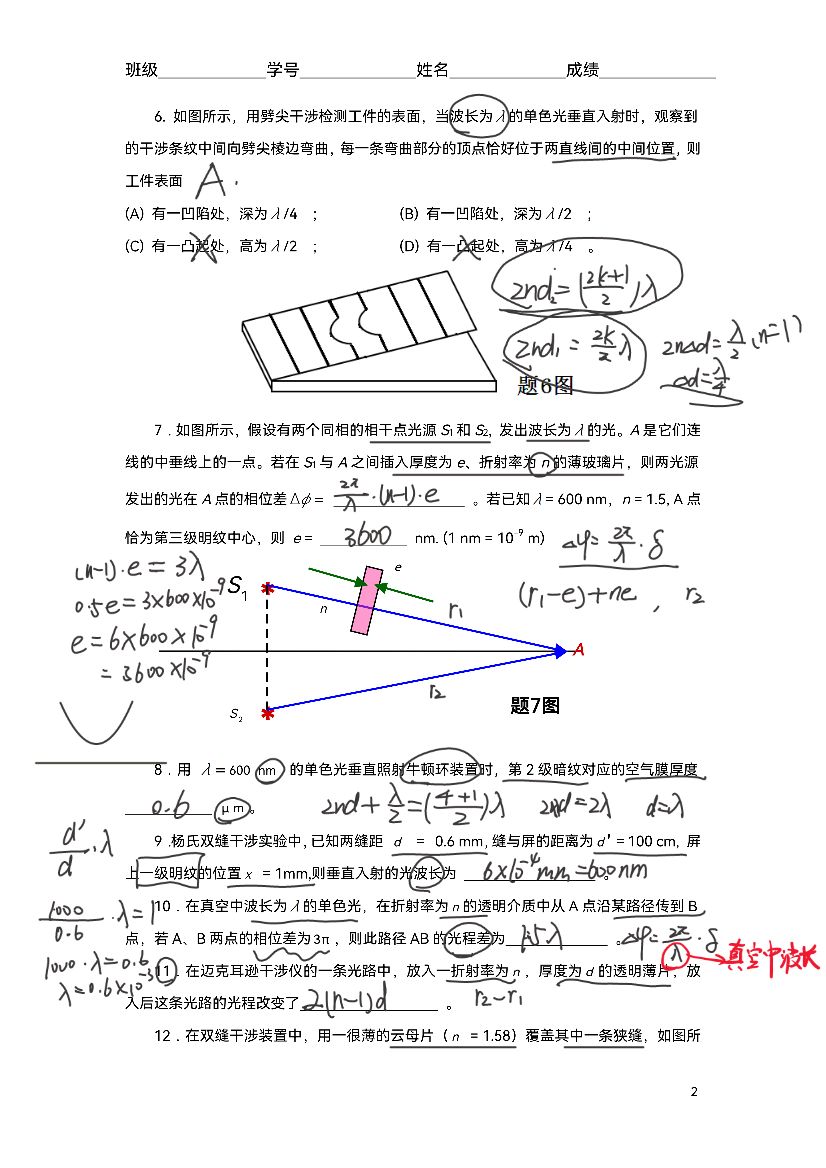 班级 学号 姓名 成绩
6. 如图所示，用劈尖干涉检测工件的表面，当波长为λ的单色光垂直入射时，观察到
的干涉条纹中间向劈尖棱边弯曲，每一条弯曲部分的顶点恰好位于两直线间的中间位置，则
工件表面 A .
(A) 有一凹陷处，深为λ/4 ； (B) 有一凹陷处，深为λ/2 ；
(C) 有一凸起处，高为λ/2 ； (D) 有一凸起处，高为λ/4 。
2nd₂=(2k+1/2)λ
2nd₁=2k/2 λ 2nΔd=λ/2 (n=1)
Δd=λ/4
题6图
7．如图所示，假设有两个同相的相干点光源 S₁ 和 S₂，发出波长为λ的光。A 是它们连
线的中垂线上的一点。若在 S₁ 与 A 之间插入厚度为 e、折射率为 n 的薄玻璃片，则两光源
发出的光在 A 点的相位差Δϕ= 2π/λ·(n-1)·e 。若已知λ=600 nm，n=1.5, A 点
恰为第三级明纹中心，则 e= 3600 nm. (1 nm = 10⁻⁹ m)
Δφ=2π/λ·δ
(n-1)·e=3λ
(r₁-e)+ne , r₂
0.5e=3×600×10⁻⁹
e=6×600×10⁻⁹
=3600×10⁻⁹
S₁ n e r₁
A
S₂ r₂
题7图
8．用 λ=600 nm 的单色光垂直照射牛顿环装置时，第 2 级暗纹对应的空气膜厚度
0.6 μm 。 2nd+λ/2=(4+1/2)λ 2nd=2λ d=λ
9 .杨氏双缝干涉实验中，已知两缝距 d = 0.6 mm, 缝与屏的距离为 d′= 100 cm, 屏
d'/d ·λ
上一级明纹的位置 x = 1mm,则垂直入射的光波长为 6×10⁻⁴mm=600nm 。
10．在真空中波长为λ的单色光，在折射率为 n 的透明介质中从 A 点沿某路径传到 B
1000/0.6 ·λ=1
点，若 A、B 两点的相位差为3π，则此路径 AB 的光程差为 1.5λ 。 Δφ=2π/λ·δ
真空中波长
1000·λ=0.6
11．在迈克耳逊干涉仪的一条光路中，放入一折射率为 n，厚度为 d 的透明薄片，放
λ=0.6×10⁻³
入后这条光路的光程改变了 2(n-1)d 。 r₂-r₁
12．在双缝干涉装置中，用一很薄的云母片（ n =1.58）覆盖其中一条狭缝，如图所
2